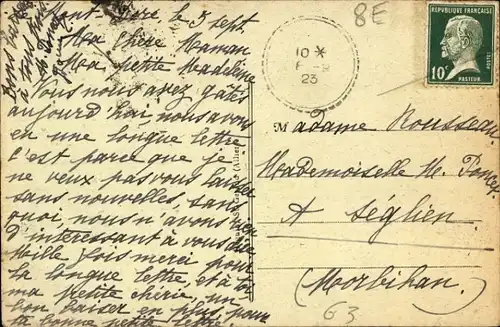 Mont Doré, le 5 Sept.
Ma Chère Maman
Ma petite Madeleine
Vous nous avez gâtés
aujourd'hui, nous avons
eu une longue lettre
C'est parce que je
ne veux pas vous laisser
sans nouvelles, sans
quoi nous n'avons rien
d'intéressant à vous dire
Mille fois merci pour
la longue lettre, et à toi
ma petite chérie, un
bon baiser en plus, pour
ta bonne petite lettre.
Bons
à tous
8E
REPUBLIQUE FRANÇAISE
10c
POSTES
PASTEUR
10 *
23
(Allier)
Madame Rousseau
Mademoiselle M.
A Séglien
(Morbihan)
G3